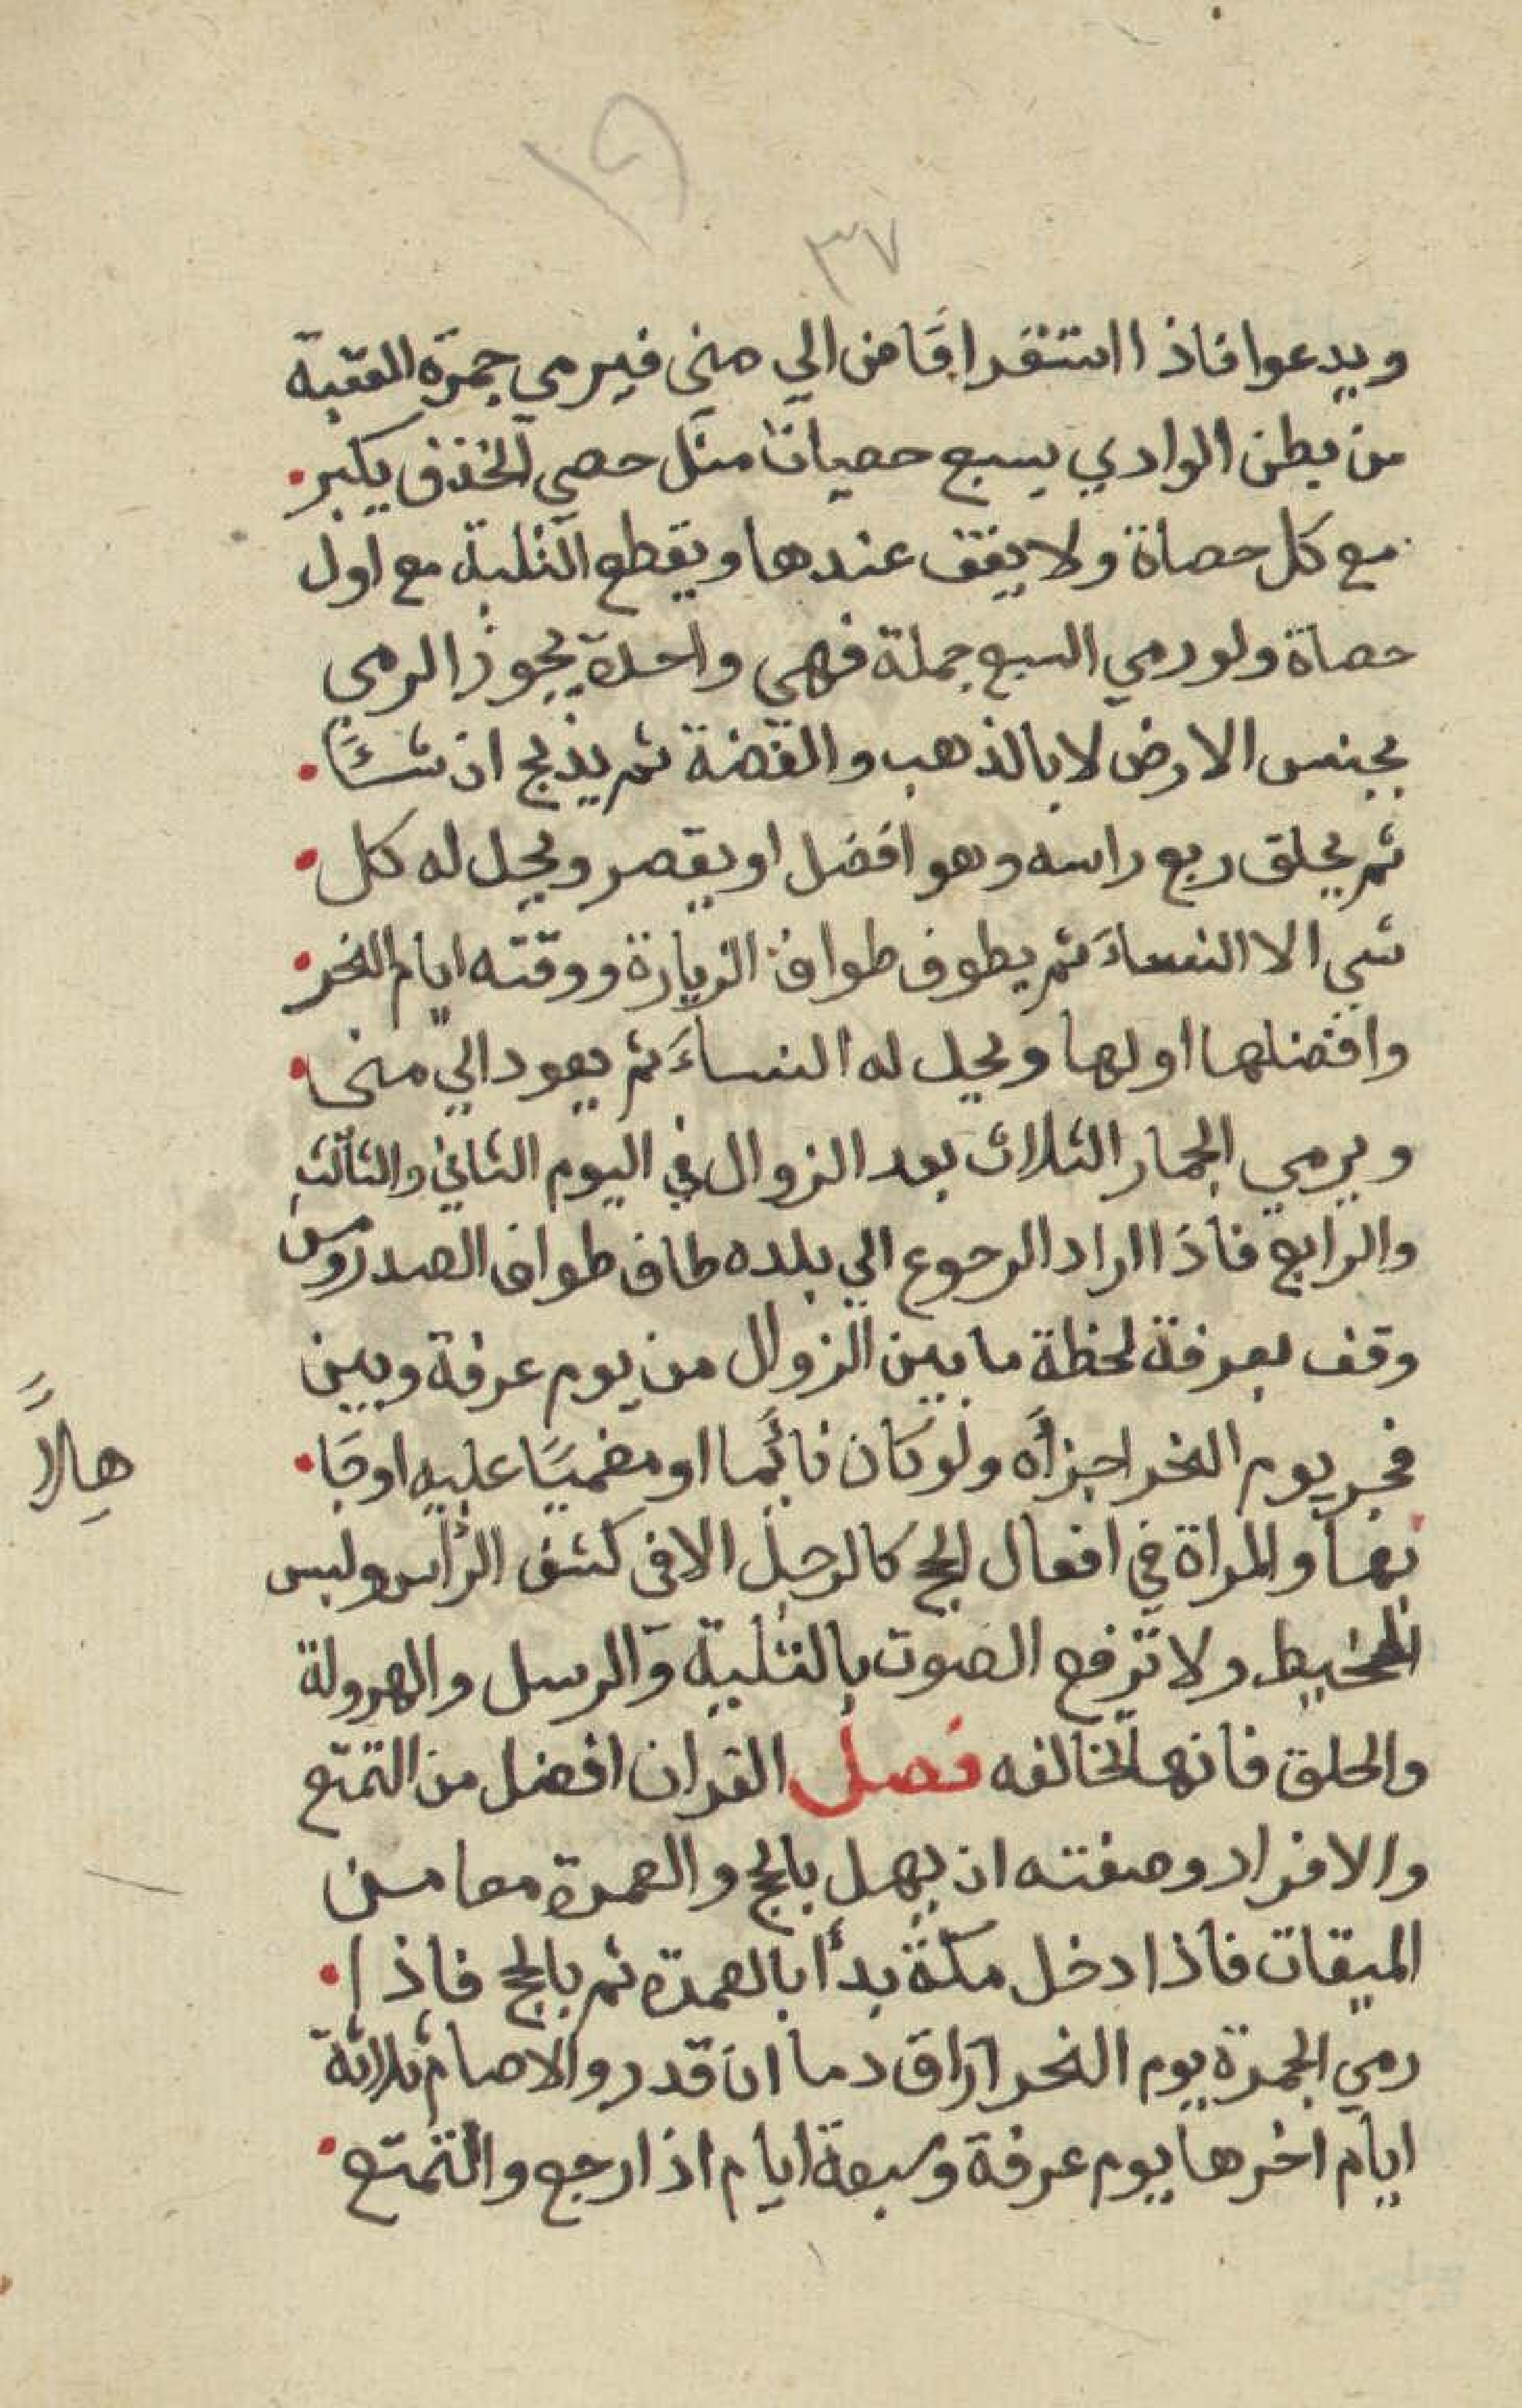 ٣٧
ويدعوا فاذا استقرا فاض الي منى فيرمي جمرة العقبة
من بطن الوادي بسبع حصيات مثل حصي الخذف يكبر
مع كل حصاة ولا يقف عندها ويقطع التلبية مع اول
حصاة ولو رمي السبع جملة فهي واحدة يجوز الرمي
بجنس الارض لا بالذهب والفضة ثم يذبح ان شاء
ثم يحلق ربع راسه وهو افضل او يقصر ويحل له كل
شي الا النساء ثم يطوف طواف الزيارة ووقته ايام النحر
وافضلها اولها ويحل له النساء ثم يعود الي منى
ويرمي الجمار الثلاث بعد الزوال في اليوم الثاني والثالث
والرابع فاذا اراد الرجوع الي بلده طاف طواف الصدر ومن
وقف بعرفة لحظة ما بين الزوال من يوم عرفة وبين
فجر يوم النحر اجزأه ولو كان نائما او مغميا عليه او جا
هلاً
بها والمراة في افعال الحج كالرجل الا في كشف الرأس ولبس
المخيط ولا ترفع الصوت بالتلبية والرسل والهرولة
والحلق فانها تخالفه فصل القران افضل من التمتع
والافراد وصفته ان يهل بالحج والعمرة معا من
الميقات فاذا دخل مكة بدأ بالعمرة ثم بالحج فاذا
رمي الجمرة يوم النحر اراق دما ان قدر والا صام ثلاثة
ايام اخرها يوم عرفة وسبعة ايام اذا رجع والتمتع